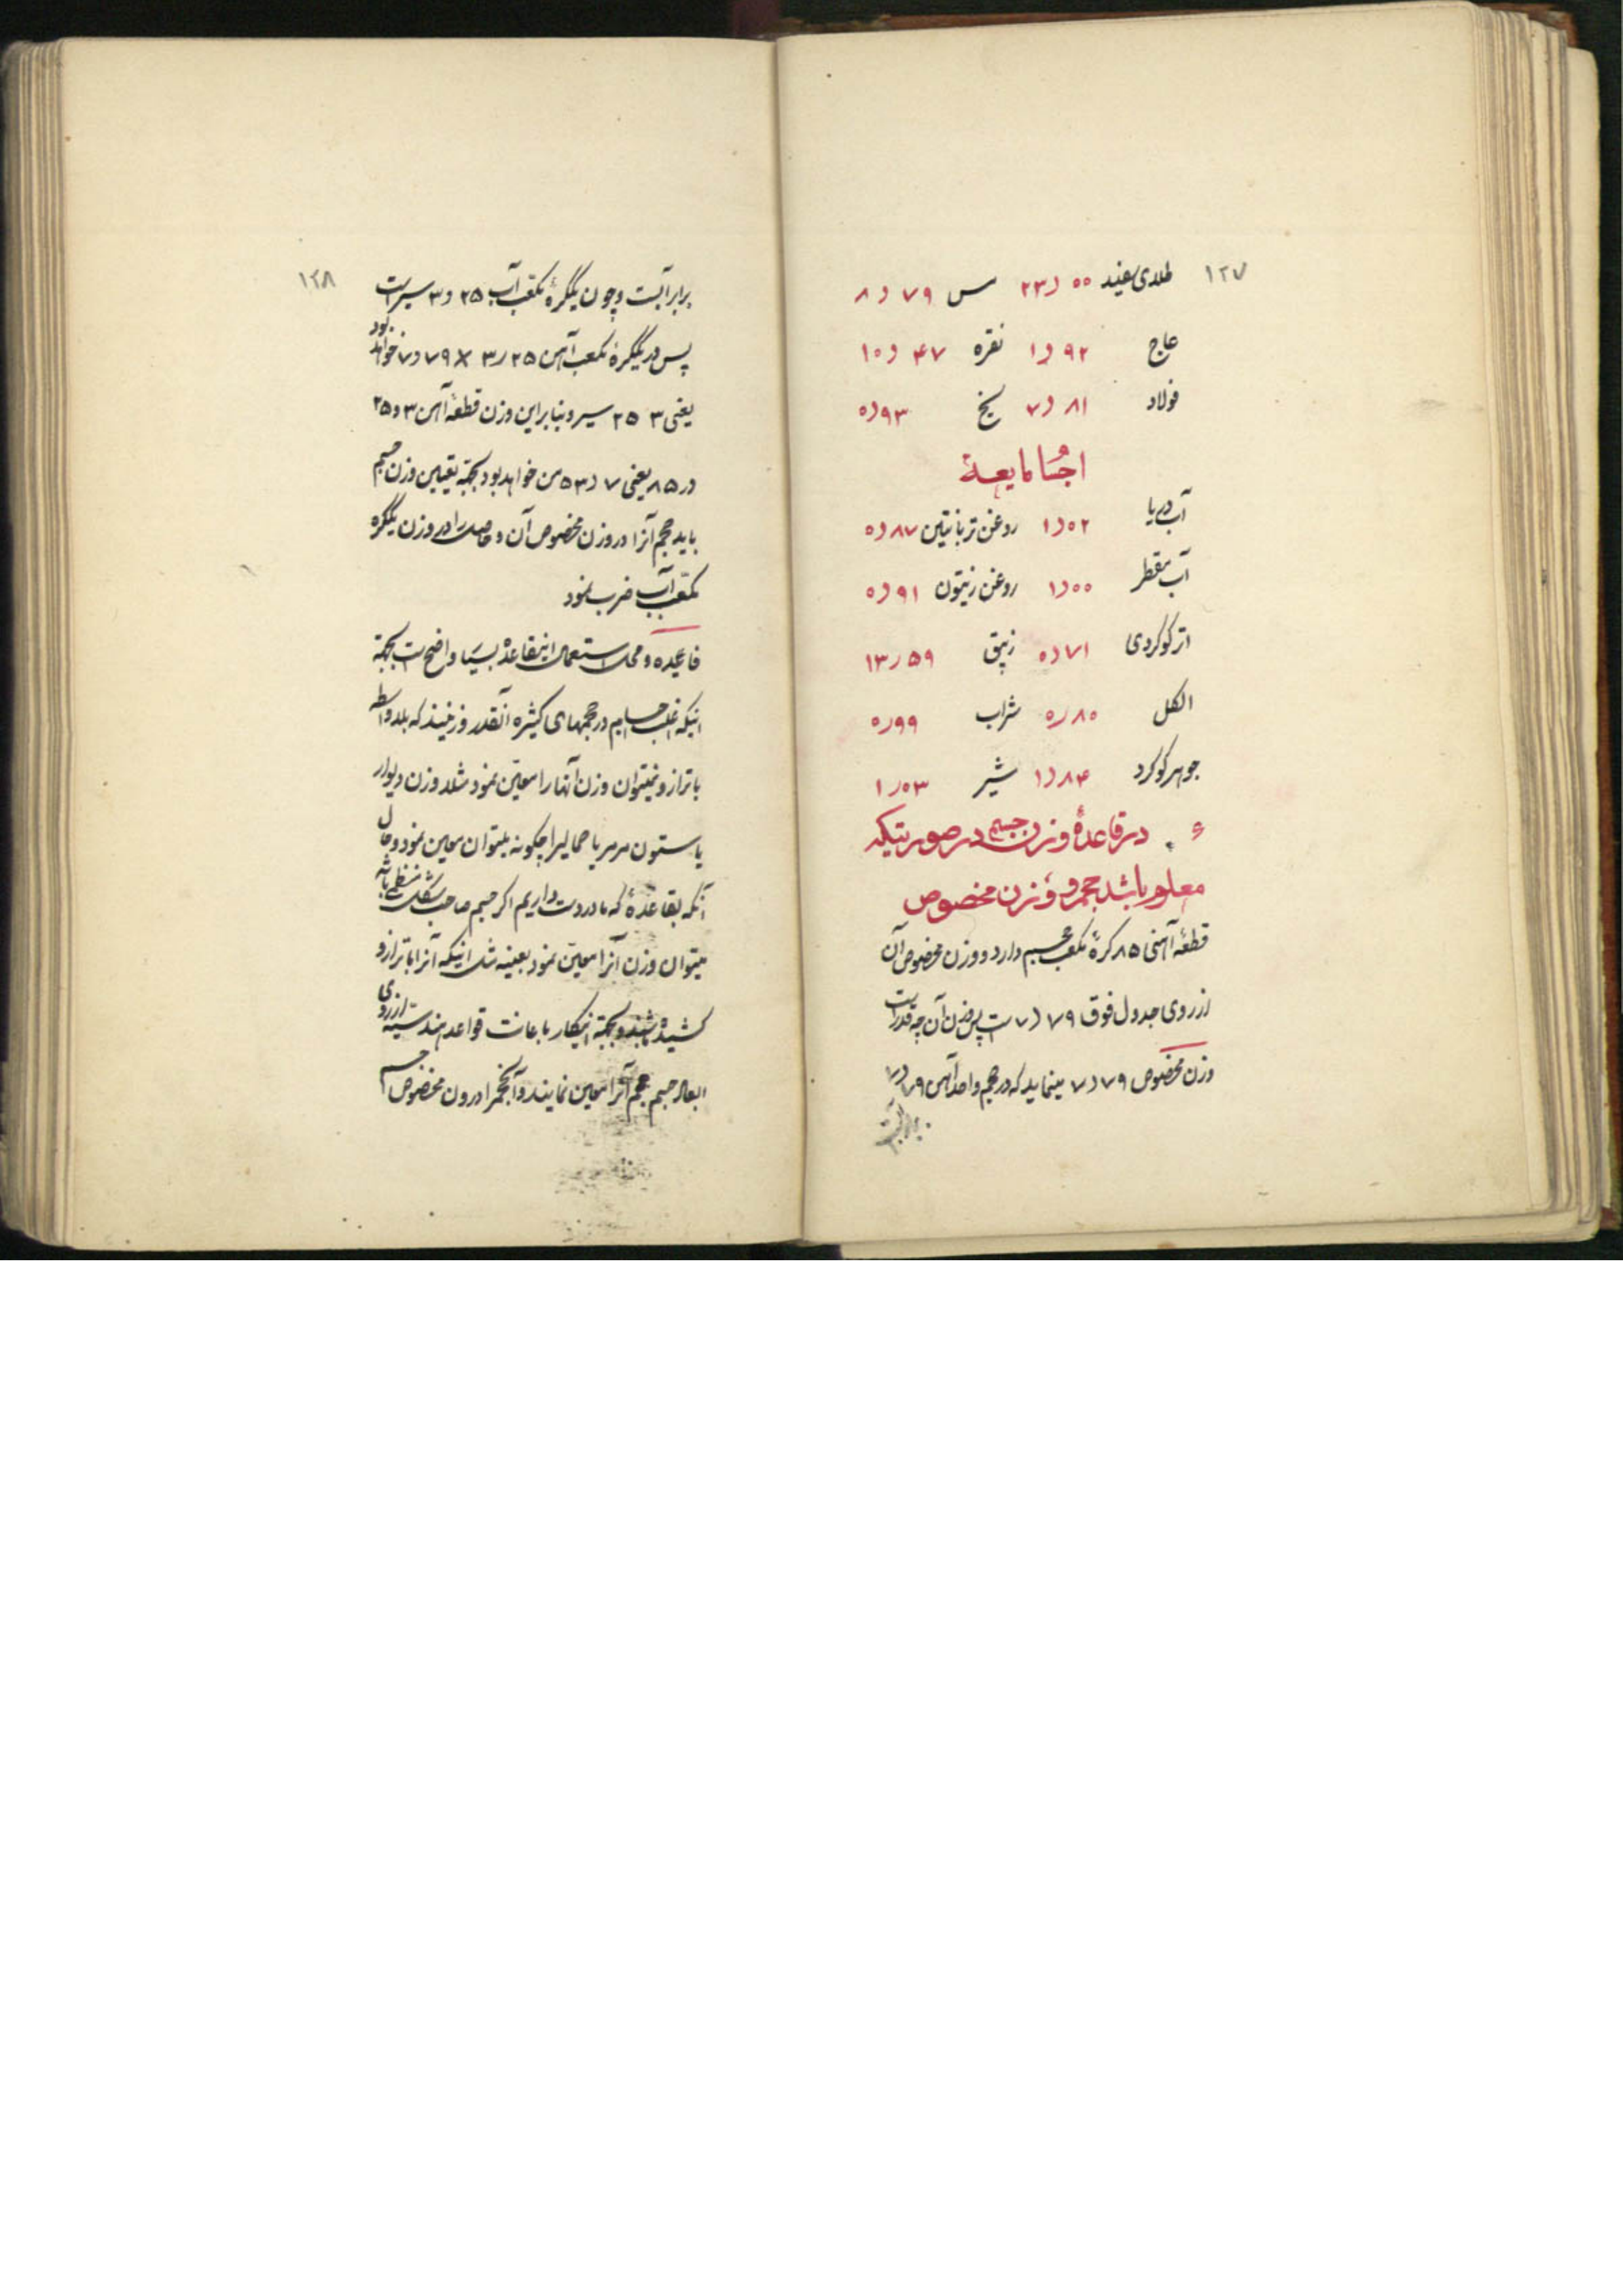 ۱۲۷
طلای سفید ۰۰ر۲۳ مس ۷۹ر۸
عاج ۹۲ر۱ نقره ۴۷ر۱۰
فولاد ۸۱ر۷ یخ ۹۳ر۰
اجسام مایعه
آب دریا ۰۲ر۱ روغن تربانتین ۸۷ر۰
آب مقطر ۰۰ر۱ روغن زیتون ۹۱ر۰
اتر کوکردی ۷۱ر۰ زیبق ۵۹ر۱۳
الکل ۸۰ر۰ شراب ۹۹ر۰
جوهر کوکرد ۸۴ر۱ شیر ۰۳ر۱
در قاعدهٔ وزن جسم در صورتیکه
معلوم باشد حجم و وزن مخصوص
قطعه آهنی ۸۵ کرهٔ مکعب حجم دارد و وزن مخصوص آن
از روی جدول فوق ۷۹ر۷ است پس وزن آن چه قدر است
وزن مخصوص ۷۹ر۷ مینماید که در حجم واحد آهن ۷۹ر۷
برابر آبست
۱۲۸
برابر آبست و چون یککرهٔ مکعب آب ۲۵ر۳ سیر است
پس در یککرهٔ مکعب آهن ۲۵ر۳ × ۷۹ر۷ خواهد بود
یعنی ۳ ۲۵ سیر و بنابراین وزن قطعهٔ آهن ۳ر۲۵
در ۸۵ یعنی ۷ر۵۳ من خواهد بود بجهة تعیین وزن جسم
باید حجم آنرا در وزن مخصوص آن و حاصل را در وزن یککره
مکعب آب ضرب نمود
فایده و محل استعمال اینقاعده بسیار واضح است بجهة
اینکه اغلب اجسام در حجمهای کثیره آنقدر وزینند که بلاواسطه
با ترازو نمیتوان وزن آنها را معین نمود مثلا وزن دیوار
یا ستون مرمر یا حمالیرا چکونه میتوان معین نمود و حال
آنکه بقاعدهٔ که ما در دست داریم اکر جسم صاحب شکل منظمی باشد
میتوان وزن آنرا معین نمود بعینه مثل اینکه آنرا با ترازو
کشیده باشند و بجهة اینکار باعانت قواعد هندسیه از روی
ابعاد جسم حجم آنرا معین نمایند و آنحجم را در وزن مخصوص جسم